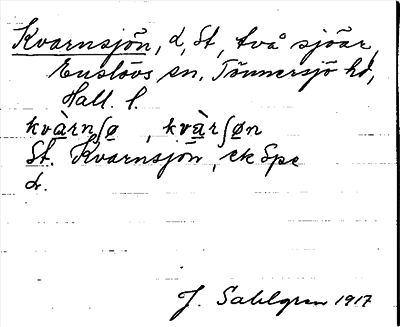 Kvarnsjön, d, St, två sjöar,
Enslövs sn, Tönnersjö hd,
Hall. l.
kvàrnʃø , kvàrʃøn
St. Kvarnsjön, ek Spe
d.
J. Sahlgren 1917